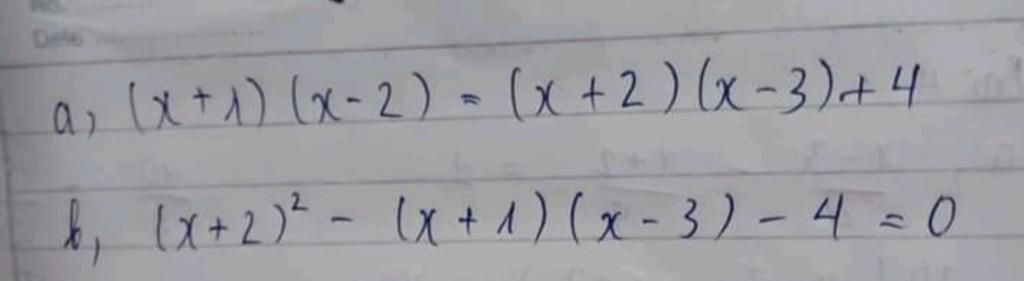 No.
Date
a, (x+1)(x-2) = (x+2)(x-3)+4
b, (x+2)² - (x+1)(x-3) - 4 = 0